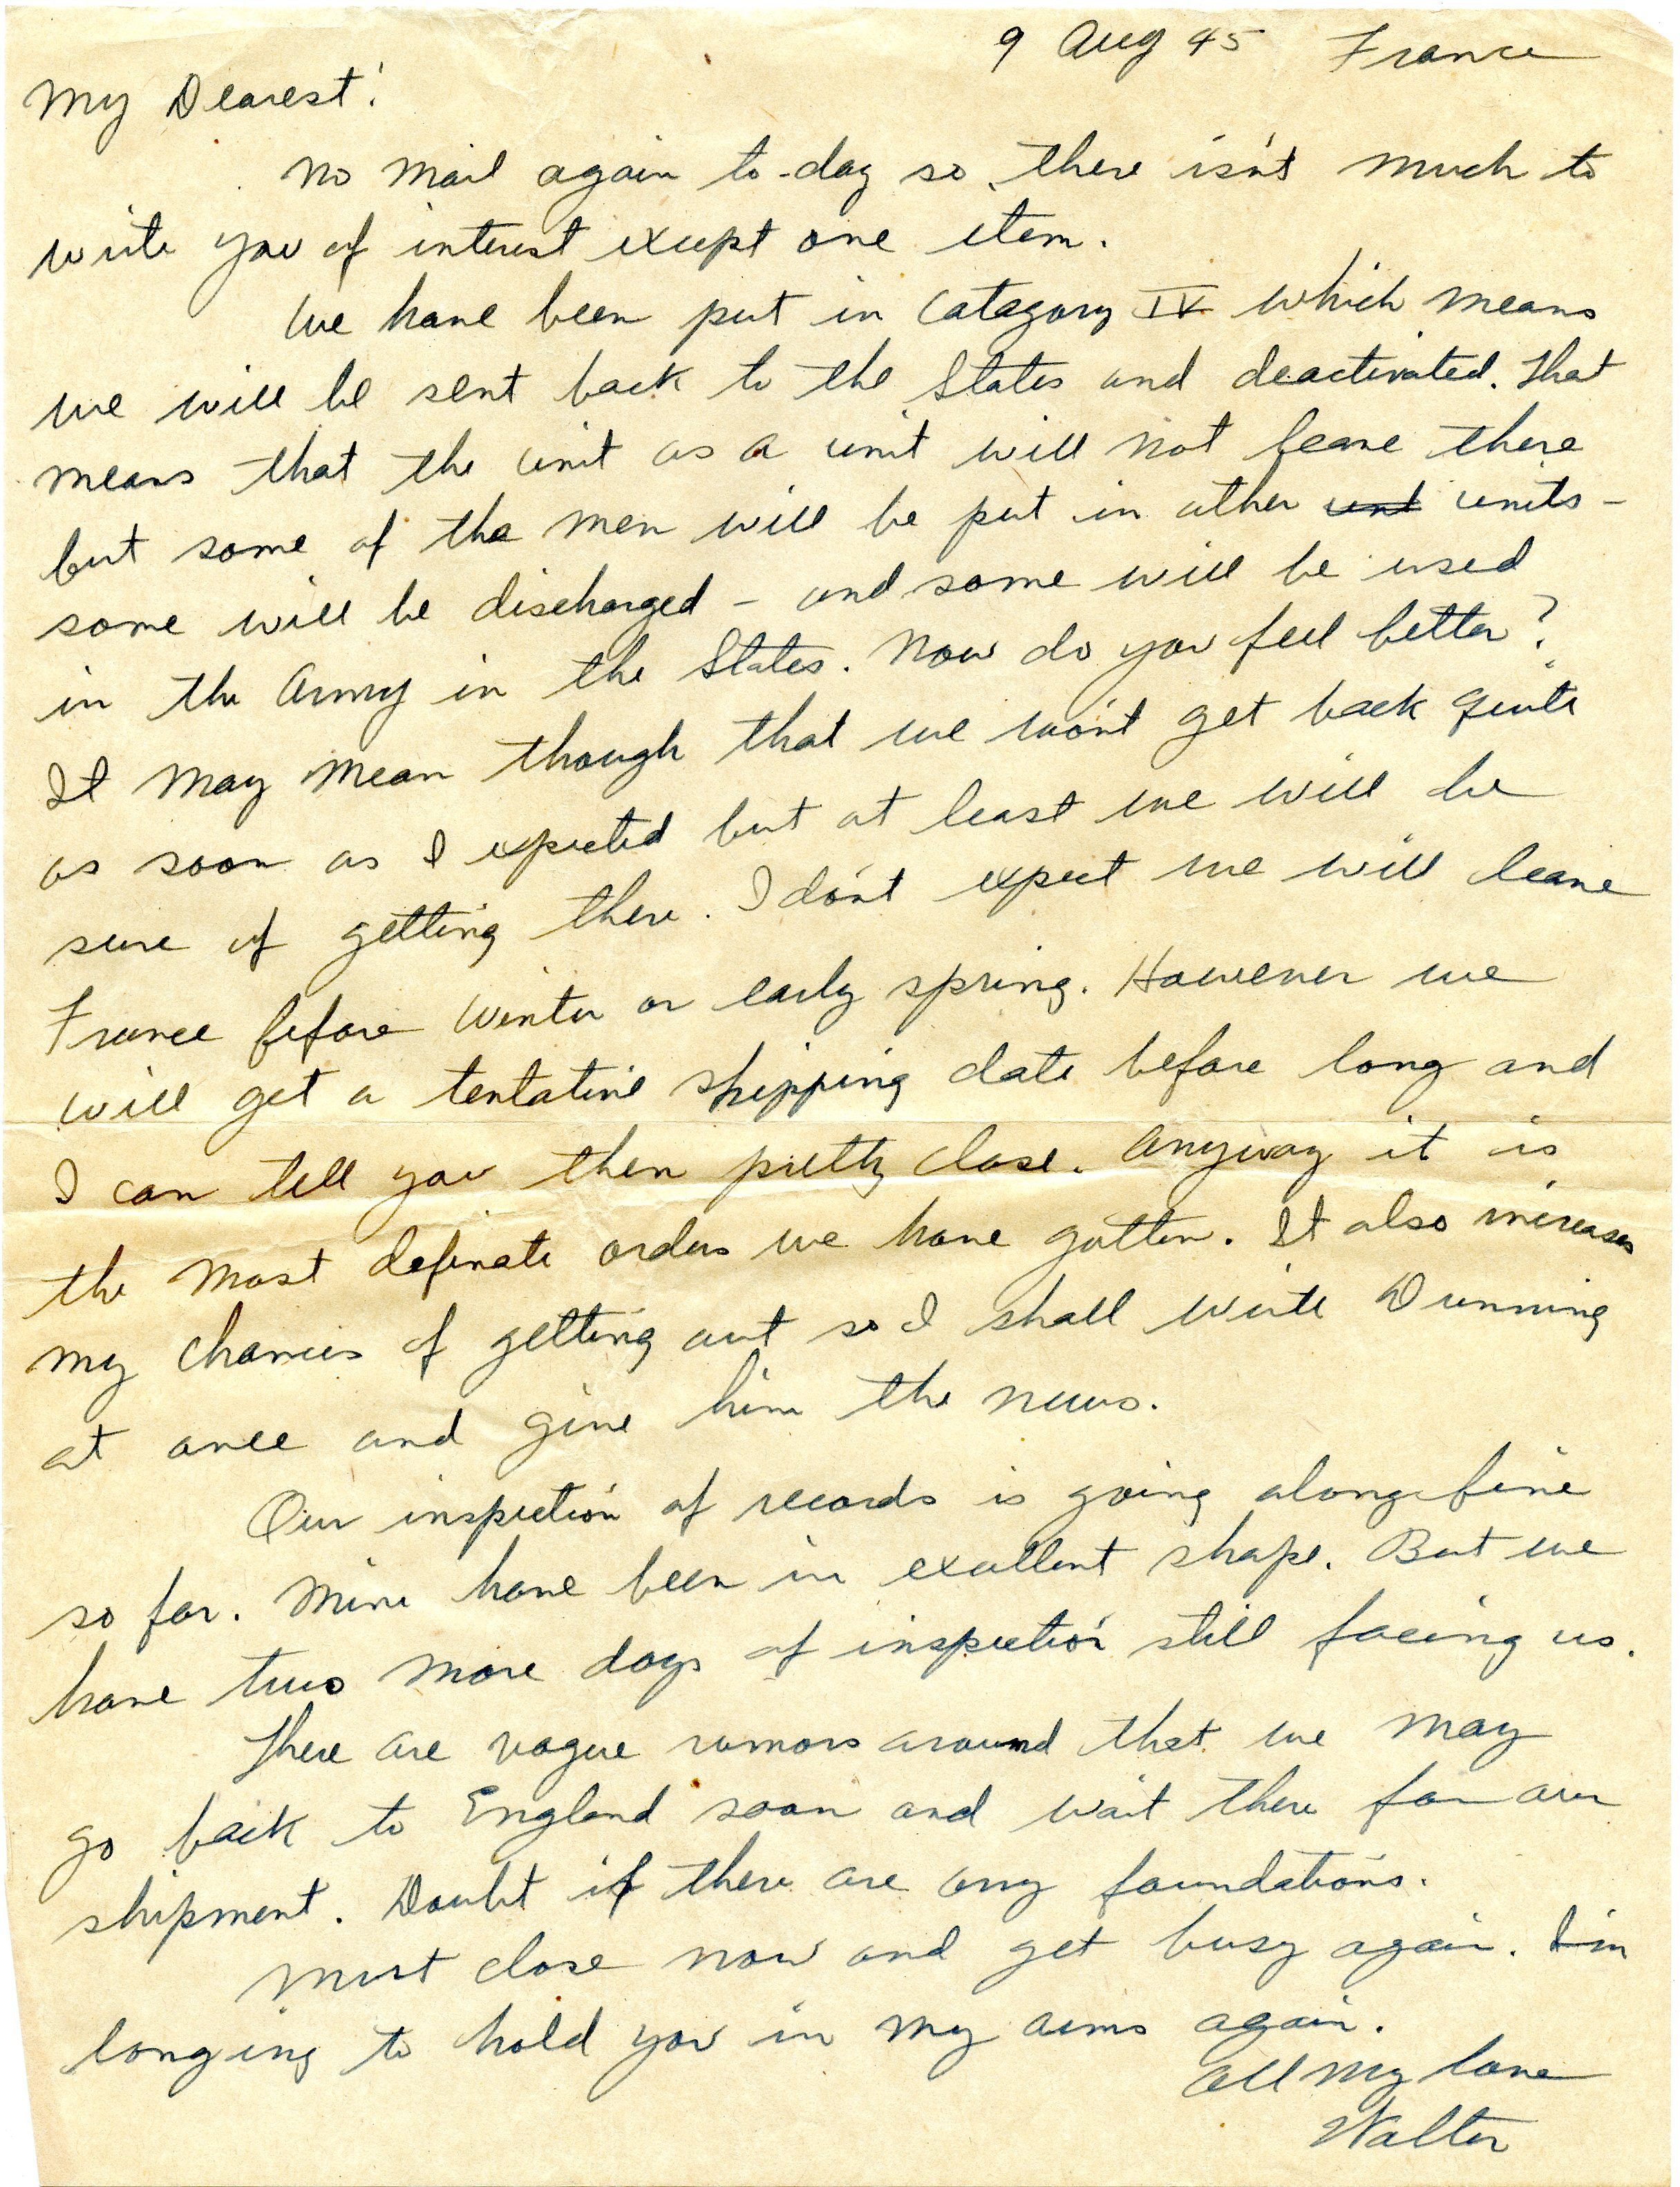 9 Aug 45 France
My Dearest!
No mail again to-day so there isn't much to
write you of interest except one item.
We have been put in Catagory IV which means
we will be sent back to the States and deactivated. That
means that the unit as a unit will not leave there
but some of the men will be put in other unt units -
some will be discharged - and some will be used
in the Army in the States. Now do you feel better?
It may mean though that we won't get back quite
as soon as I expected but at least we will be
sure of getting there. I don't expect we will leave
France before winter or early spring. However we
will get a tentative shipping date before long and
I can tell you then pretty close. Anyway it is
the most definate orders we have gotten. It also increases
my chances of getting out so I shall write Dunning
at once and give him the news.
Our inspection of records is going along fine
so far. Mine have been in excellent shape. But we
have two more days of inspection still facing us.
There are vague rumors around that we may
go back to England soon and wait there for our
shipment. Doubt if there are any foundations.
Must close now and get busy again. I'm
longing to hold you in my arms again.
All my love
Walter